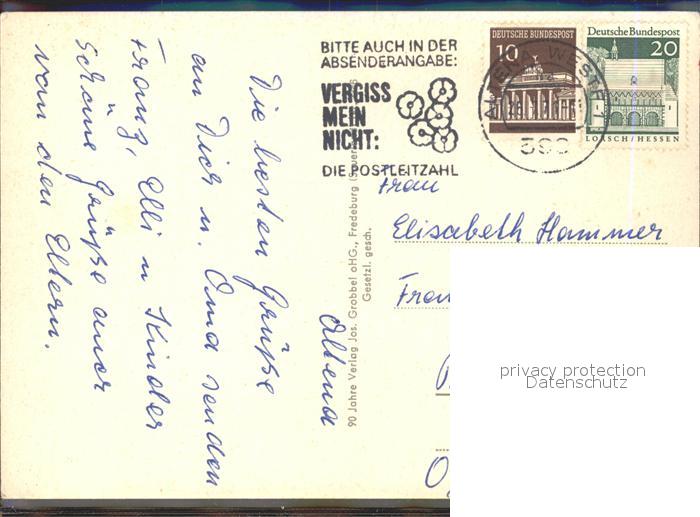 BITTE AUCH IN DER
ABSENDERANGABE:
VERGISS
MEIN
NICHT:
DIE POSTLEITZAHL
DEUTSCHE BUNDESPOST
10
Deutsche Bundespost
20
LORSCH/HESSEN
ALTENA, WESTF
Altena
Die besten Grüße
an Dich u. Oma senden
Franz, Elli u Kinder
Schöne Grüße auch
von den Eltern.
90 Jahre Verlag Jos. Grobbel oHG., Fredeburg
Gesetzl. gesch.
Frau
Elisabeth Hammer
privacy protection
Datenschutz